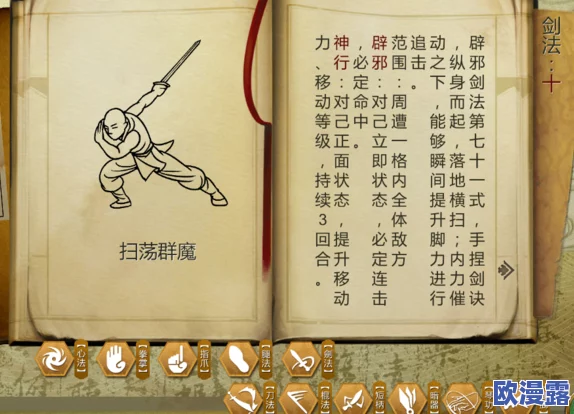 剑法：十
辟邪剑法第七十一式，手捏剑诀
，纵身而起，落地横扫；内力催
动之下，能够瞬间提升脚力进行
追击。
范围：周遭一格内全体敌方
辟邪：对己立即状态，必定连击
，必定命中。
神行：对己正面状态，提升移动
力、移动等级，持续3回合。
扫荡群魔
【心法】
【拳掌】
【指爪】
【腿法】
【剑法】
【刀法】
【棍法】
【短柄】
【暗器】
欧漫露